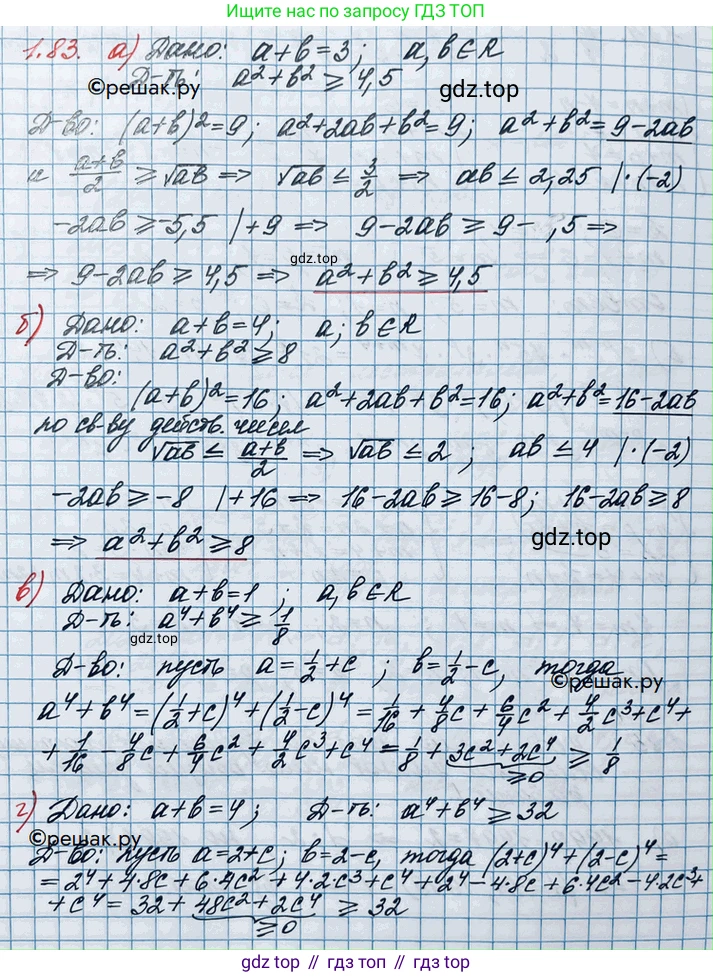 Ищите нас по запросу ГДЗ ТОП
1.83. а) Дано: a+b=3; a, b∈R
Д-ть: a²+b² ⩾ 4,5
©решак.ру
gdz.top
Д-во: (a+b)²=9; a²+2ab+b²=9; a²+b²=9-2ab
и (a+b)/2 ⩾ √ab ⇒ √ab ⩽ 3/2 ⇒ ab ⩽ 2,25 |·(-2)
-2ab ⩾ -5,5 |+9 ⇒ 9-2ab ⩾ 9- ,5 ⇒
gdz.top
⇒ 9-2ab ⩾ 4,5 ⇒ a²+b² ⩾ 4,5
б) Дано: a+b=4; a; b∈R
Д-ть: a²+b² ⩾ 8
Д-во:
(a+b)²=16; a²+2ab+b²=16; a²+b²=16-2ab
по св-ву действ. чисел
√ab ⩽ (a+b)/2 ⇒ √ab ⩽ 2; ab ⩽ 4 |·(-2)
-2ab ⩾ -8 |+16 ⇒ 16-2ab ⩾ 16-8; 16-2ab ⩾ 8
⇒ a²+b² ⩾ 8
gdz.top
в) Дано: a+b=1; a, b∈R
Д-ть: a⁴+b⁴ ⩾ 1/8
gdz.top
Д-во: пусть a=1/2+c; b=1/2-c, тогда
©решак.ру
a⁴+b⁴=(1/2+c)⁴+(1/2-c)⁴=1/16+4/8c+6/4c²+4/2c³+c⁴+
+1/16-4/8c+6/4c²+4/2c³+c⁴=1/8+3c²+2c⁴ ⩾ 1/8
⩾0
г) Дано: a+b=4; Д-ть: a⁴+b⁴ ⩾ 32
©решак.ру
Д-во: пусть a=2+c; b=2-c, тогда (2+c)⁴+(2-c)⁴=
=2⁴+4·8c+6·4c²+4·2·c³+c⁴+2⁴-4·8c+6·4c²-4·2c³+
+c⁴=32+48c²+2c⁴ ⩾ 32
⩾0
gdz.top // гдз.топ // гдз топ